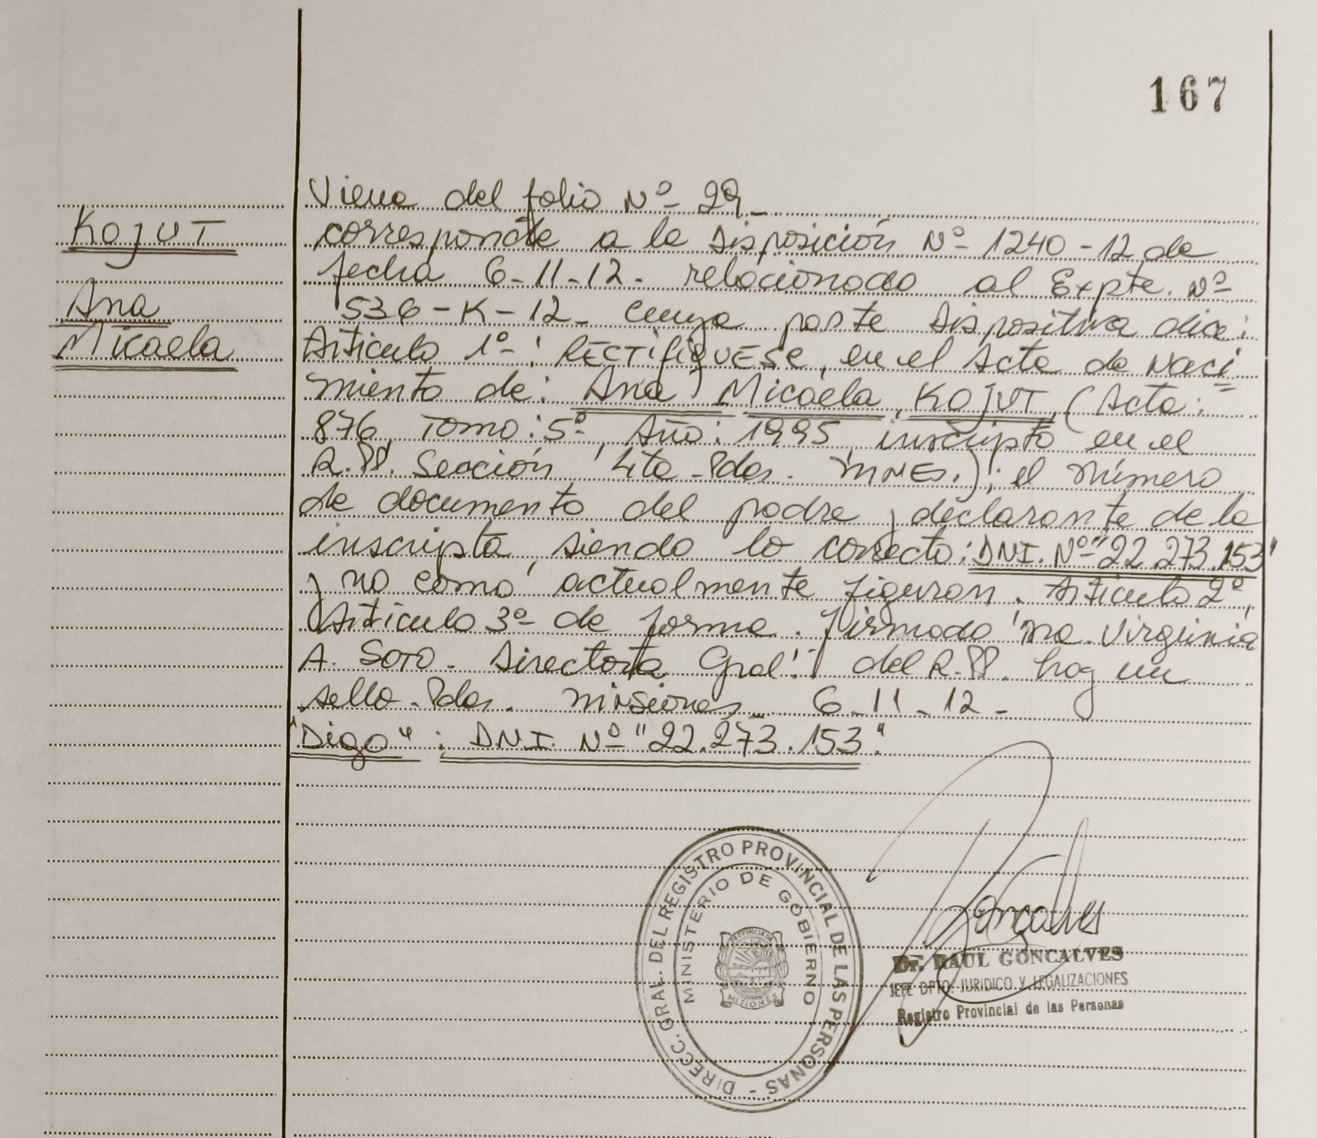 167
KOJUT
Ana
Micaela
Viene del folio Nº 29
corresponde a la Disposición Nº 1240-12 de
fecha 6-11-12. relacionado al Expte. Nº
536-K-12. Cuya parte dispositiva dice:
Artículo 1º: RECTIFIQUESE, en el Acta de Naci
miento de: Ana Micaela KOJUT (Acta:
876, Tomo: 5º, Año: 1995, inscripto en el
R.PP. Sección 4ta. Pdas. MNES.); el número
de documento del padre y declarante de la
inscripta, siendo lo correcto: DNI. Nº "22.273.153"
y no como actualmente figuran. Artículo 2º,
Artículo 3º de forma. Firmado Ma. Virginia
A. SOTO. Directora Gral. del R.PP. hay un
sello. Pdas. Misiones 6-11-12-
"Digo": DNI. Nº "22.273.153"
DIRECC. GRAL. DEL REGISTRO PROVINCIAL DE LAS PERSONAS -
MINISTERIO DE GOBIERNO
PROVINCIA DE
MISIONES
Goncalves
Dr. RAUL GONCALVES
JEFE DPTO. JURIDICO Y LEGALIZACIONES
Registro Provincial de las Personas